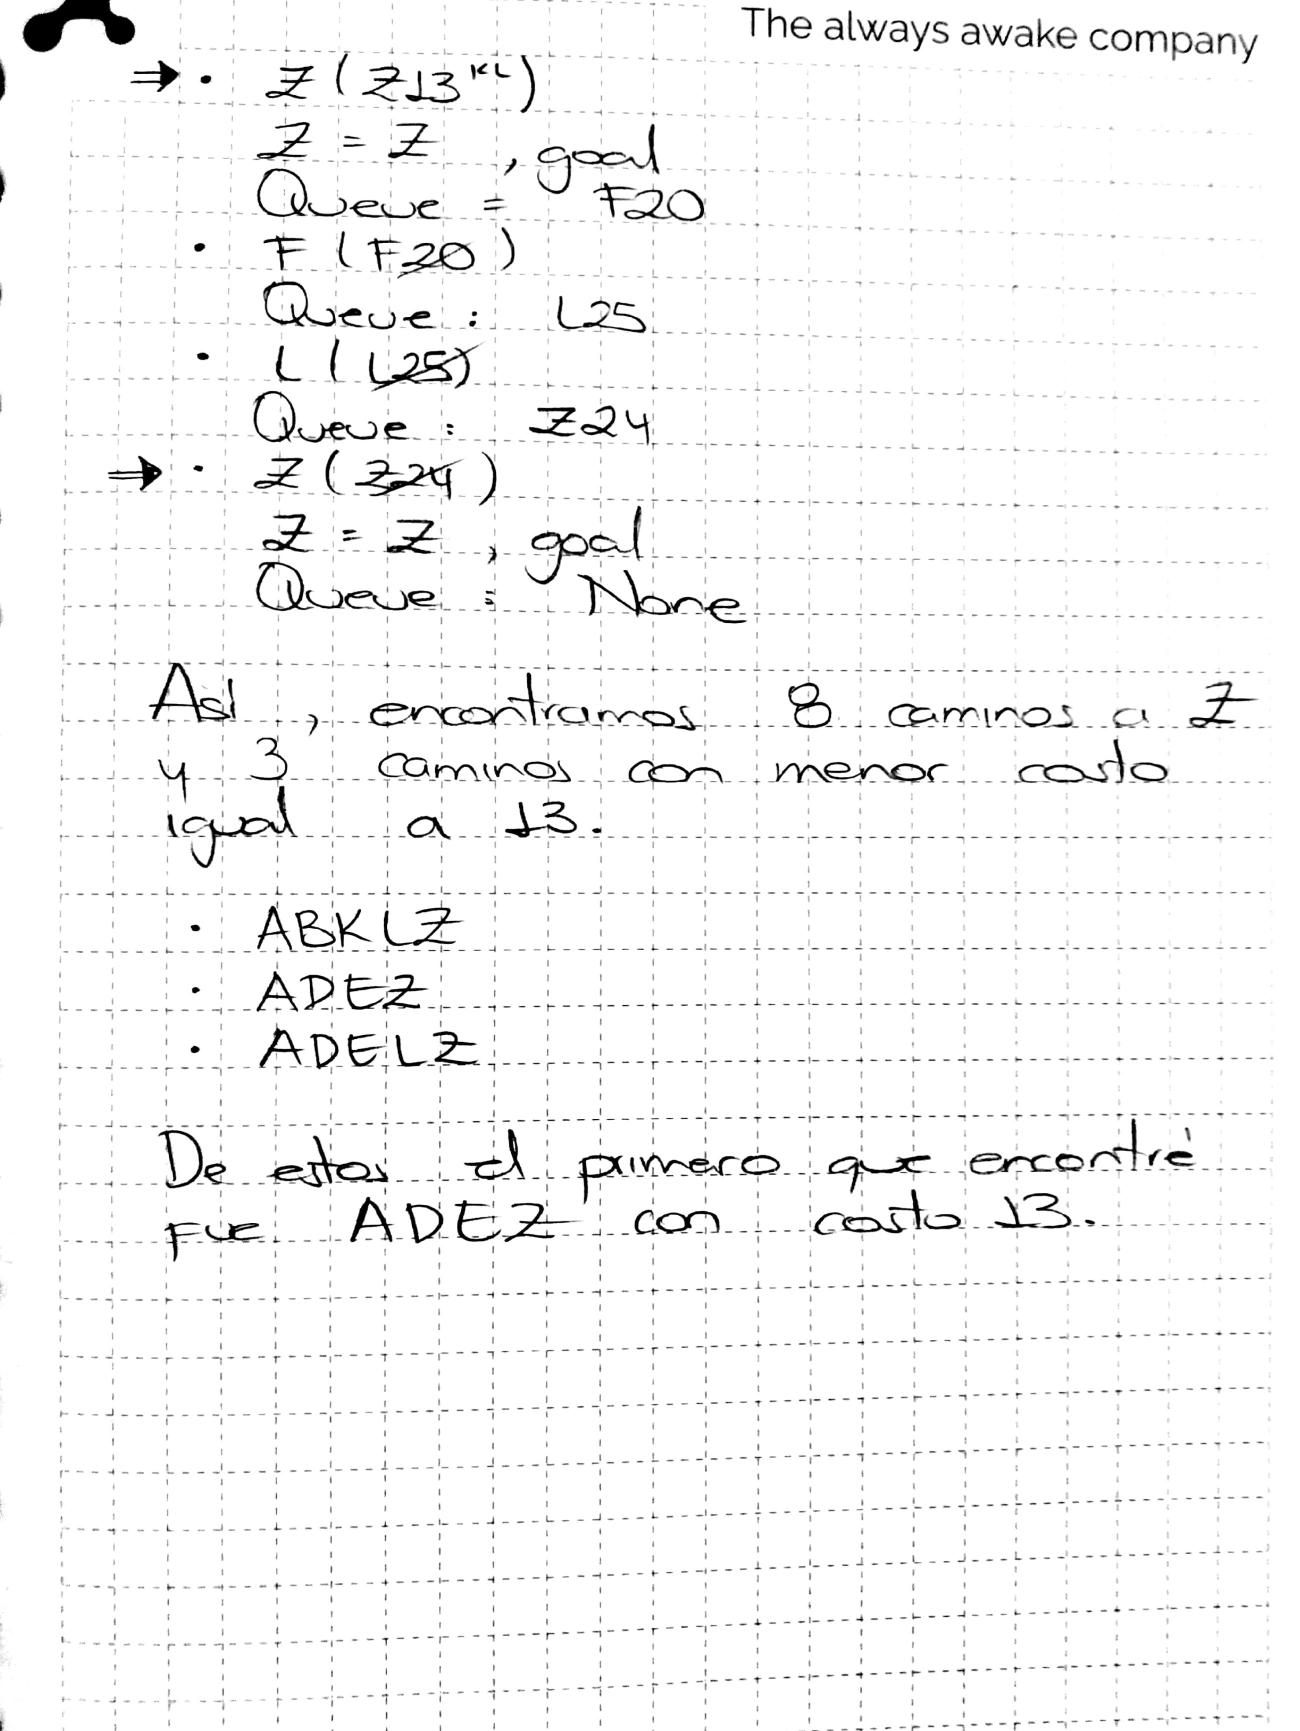 The always awake company
⇒ · Z (Z13ᴷᴸ)
Z = Z , goal
Queue = F20
· F (F20)
Queue : L25
· L (L25)
Queue : Z24
⇒ · Z (Z24)
Z = Z , goal
Queue : None
Así , encontramos 8 caminos a Z
y 3 caminos con menor costo
igual a 13.
· ABKLZ
· ADEZ
· ADELZ
De estos el primero que encontré
fue ADEZ con costo 13.